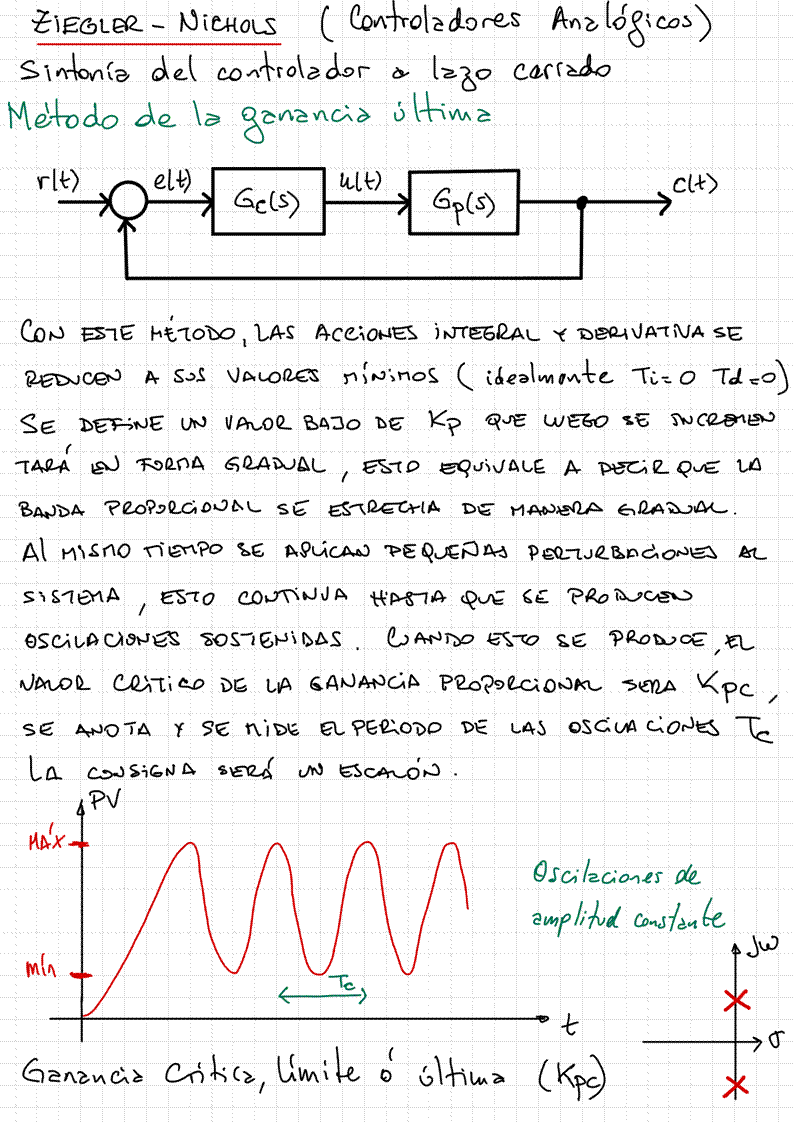 ZIEGLER - NICHOLS (Controladores Analógicos)
Sintonía del controlador a lazo cerrado
Método de la ganancia última
r(t) e(t) Gc(s) u(t) Gp(s) c(t)
CON ESTE MÉTODO, LAS ACCIONES INTEGRAL Y DERIVATIVA SE
REDUCEN A SUS VALORES MÍNIMOS (idealmente Ti=0 Td=0)
SE DEFINE UN VALOR BAJO DE Kp QUE LUEGO SE INCREMEN
TARÁ EN FORMA GRADUAL, ESTO EQUIVALE A DECIR QUE LA
BANDA PROPORCIONAL SE ESTRECHA DE MANERA GRADUAL.
Al MISMO TIEMPO SE APLICAN PEQUEÑAS PERTURBACIONES AL
SISTEMA, ESTO CONTINUA HASTA QUE SE PRODUCEN
OSCILACIONES SOSTENIDAS. CUANDO ESTO SE PRODUCE, EL
VALOR CRÍTICO DE LA GANANCIA PROPORCIONAL SERA Kpc,
SE ANOTA Y SE MIDE EL PERÍODO DE LAS OSCILACIONES Tc
LA CONSIGNA SERÁ UN ESCALÓN.
PV
MÁX
mín
Tc
t
Oscilaciones de
amplitud constante
jω
σ
Ganancia Crítica, límite ó última (Kpc)